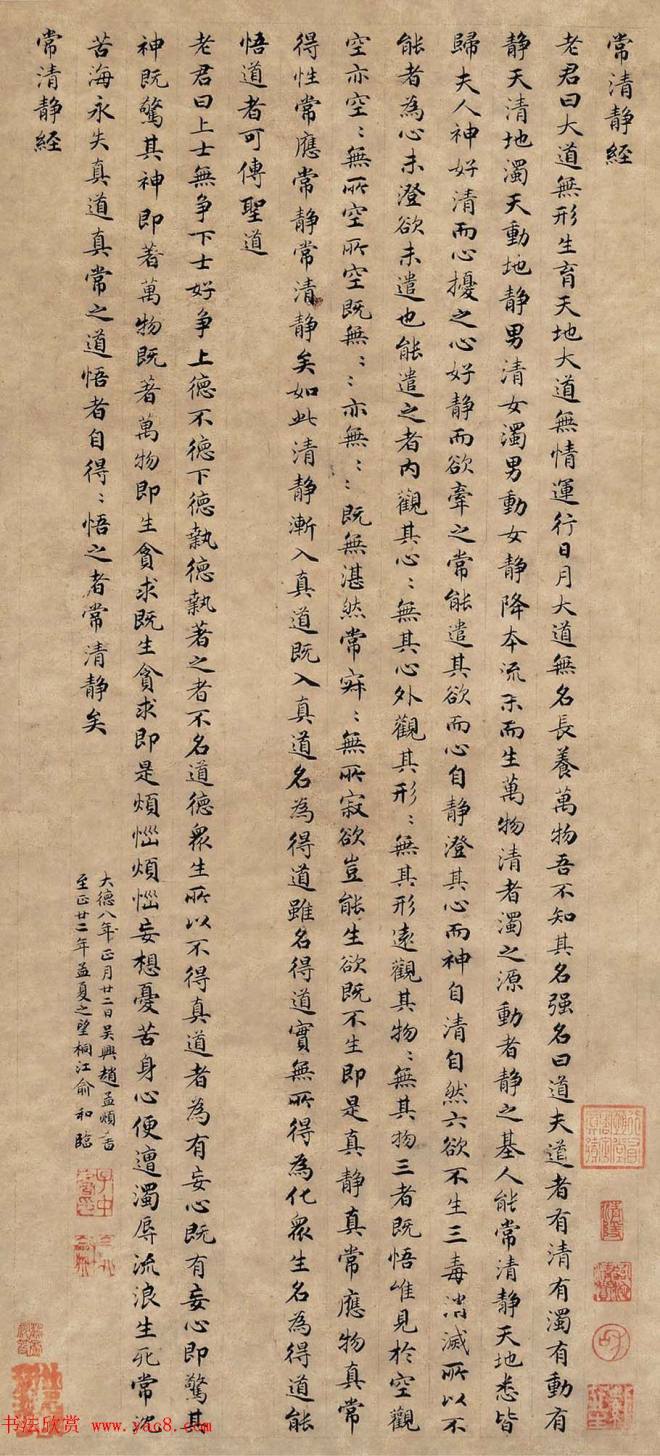 常清静經
老君曰大道無形生育天地大道無情運行日月大道無名長養萬物吾不知其名强名曰道夫道者有清有濁有動有
静天清地濁天動地静男清女濁男動女静降本流末而生萬物清者濁之源動者静之基人能常清静天地悉皆
歸夫人神好清而心擾之心好静而欲牽之常能遣其欲而心自静澄其心而神自清自然六欲不生三毒消滅所以不
能者為心未澄欲未遣也能遣之者内觀其心〻無其心外觀其形〻無其形遠觀其物〻無其物三者既悟惟見於空觀
空亦空〻無所空所空既無〻〻亦無〻〻既無湛然常寂〻無所寂欲豈能生欲既不生即是真静真常應物真常
得性常應常静常清静矣如此清静漸入真道既入真道名為得道雖名得道實無所得為化衆生名為得道能
悟道者可傳聖道
老君曰上士無争下士好争上德不德下德執德執著之者不名道德衆生所以不得真道者為有妄心既有妄心即驚其
神既驚其神即著萬物既著萬物即生貪求既生貪求即是煩惱煩惱妄想憂苦身心便遭濁辱流浪生死常沉
苦海永失真道真常之道悟者自得〻悟之者常清静矣
常清静經
大德八年正月廿二日吴興趙孟頫書
至正廿二年孟夏之望桐江俞和臨
子中
书法欣赏 www.yac8.com